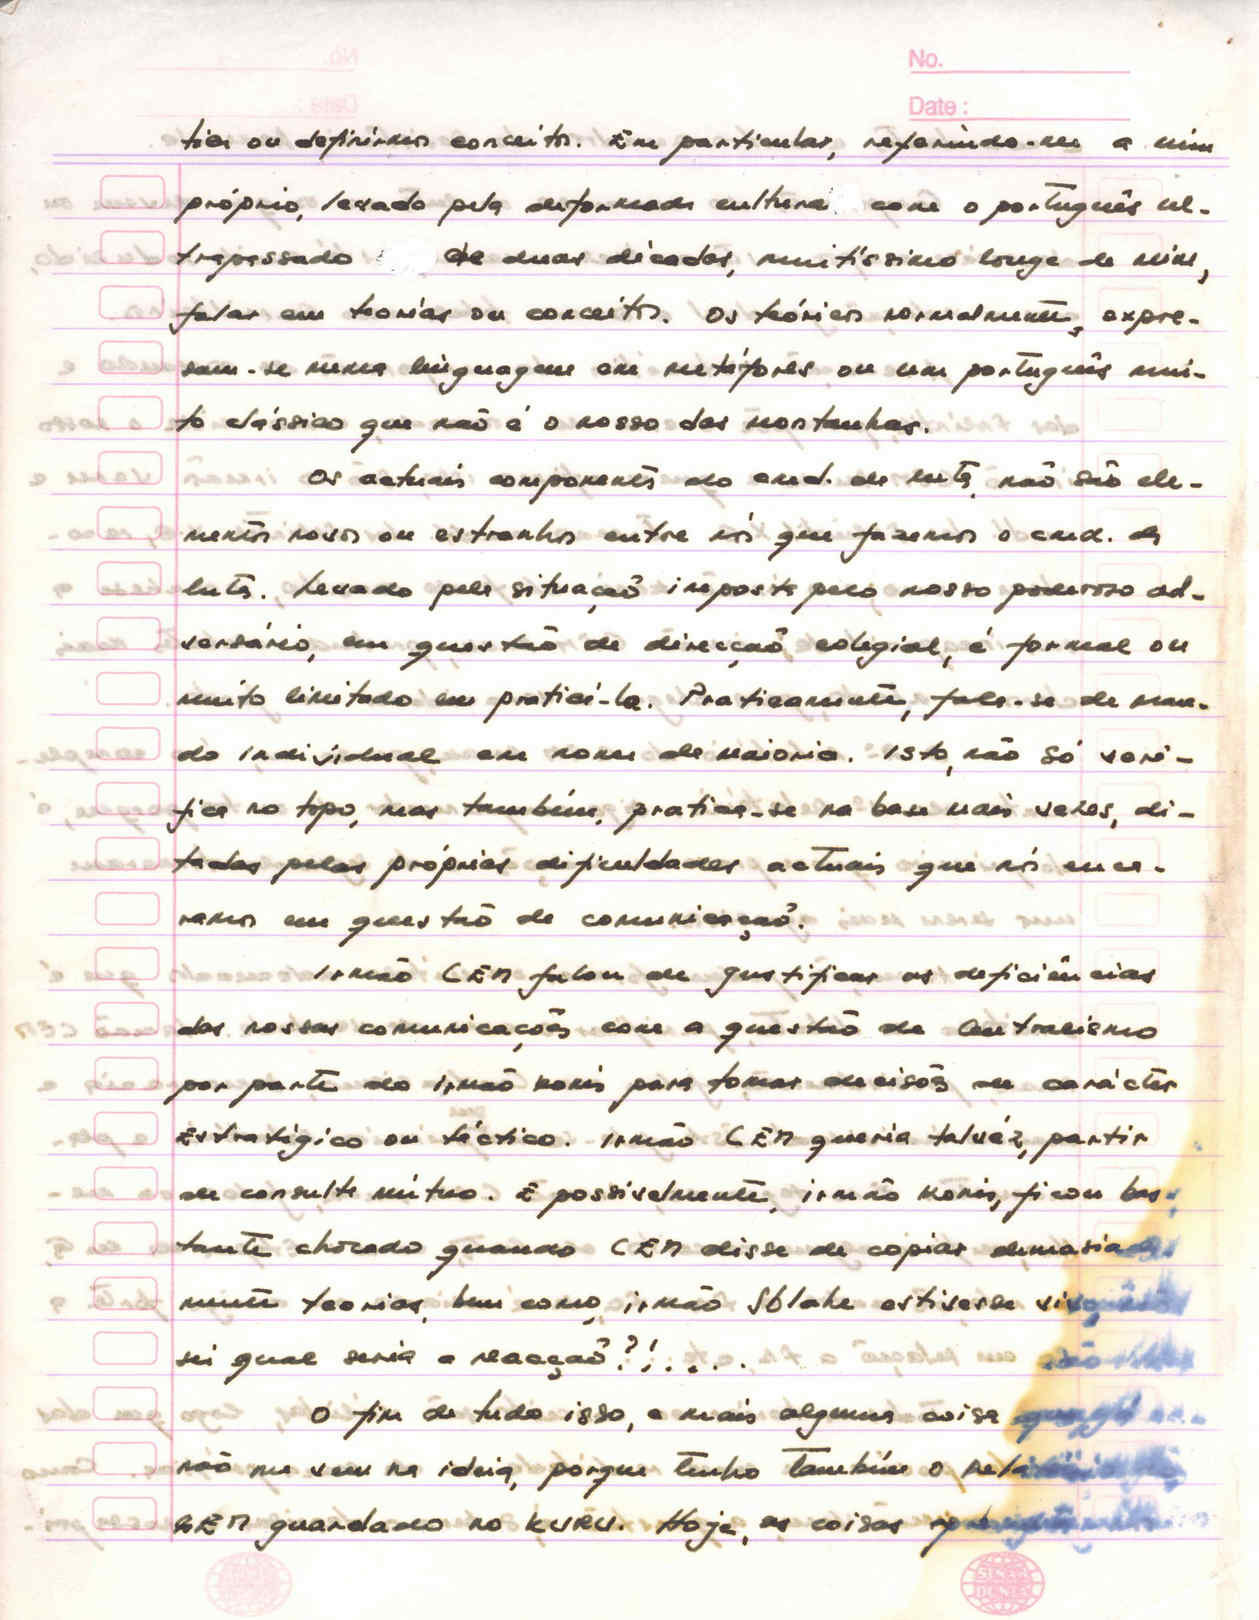 No.
Date :
tica ou definirmos conceitos. Em particular, referindo-me a mim
próprio, levado pela deformada cultura com o português ul-
trapassado de duas décadas, muitíssimo longe de mim,
falar em teorias ou conceitos. Os teóricos normalmente, expre-
sam-se numa linguagem em metáfores ou um português mui-
to clássico que não é o nosso das montanhas.
Os actuais componentes do cmd. de luta, não são ele-
mentos novos ou estranhos entre nós que fazemos o cmd. da
luta. Levado pela situação imposta pelo nosso poderoso ad-
versário, em questão de direcção colegial, é formal ou
muito limitado em praticá-la. Praticamente, fala-se de man-
do individual em nome de maioria. Isto, não só veri-
fica no topo, mas também, pratica-se na base mais vezes, di-
tadas pelas próprias dificuldades actuais que nós enca-
ramos em questão de comunicação.
Irmão CEM falou de justificar as deficiências
das nossas comunicações com a questão de Centralismo
por parte do irmão Konis para tomar decisões de carácter
Estratégico ou táctico. Irmão CEM queria talvéz, partir
de consulta mútuo. E possivelmente, irmão Konis, ficou bas-
tante chocado quando CEM disse de copiar demasiada
mente teorias, bem como, irmão Sblake estivesse vivo, não
sei qual seria a reacção?!....
O fim de tudo isso, e mais alguma coisa que já
não me vem na ideia, porque tenho também o
REM guardado no KURU. Hoje, as coisas
SINAR
DUNIA